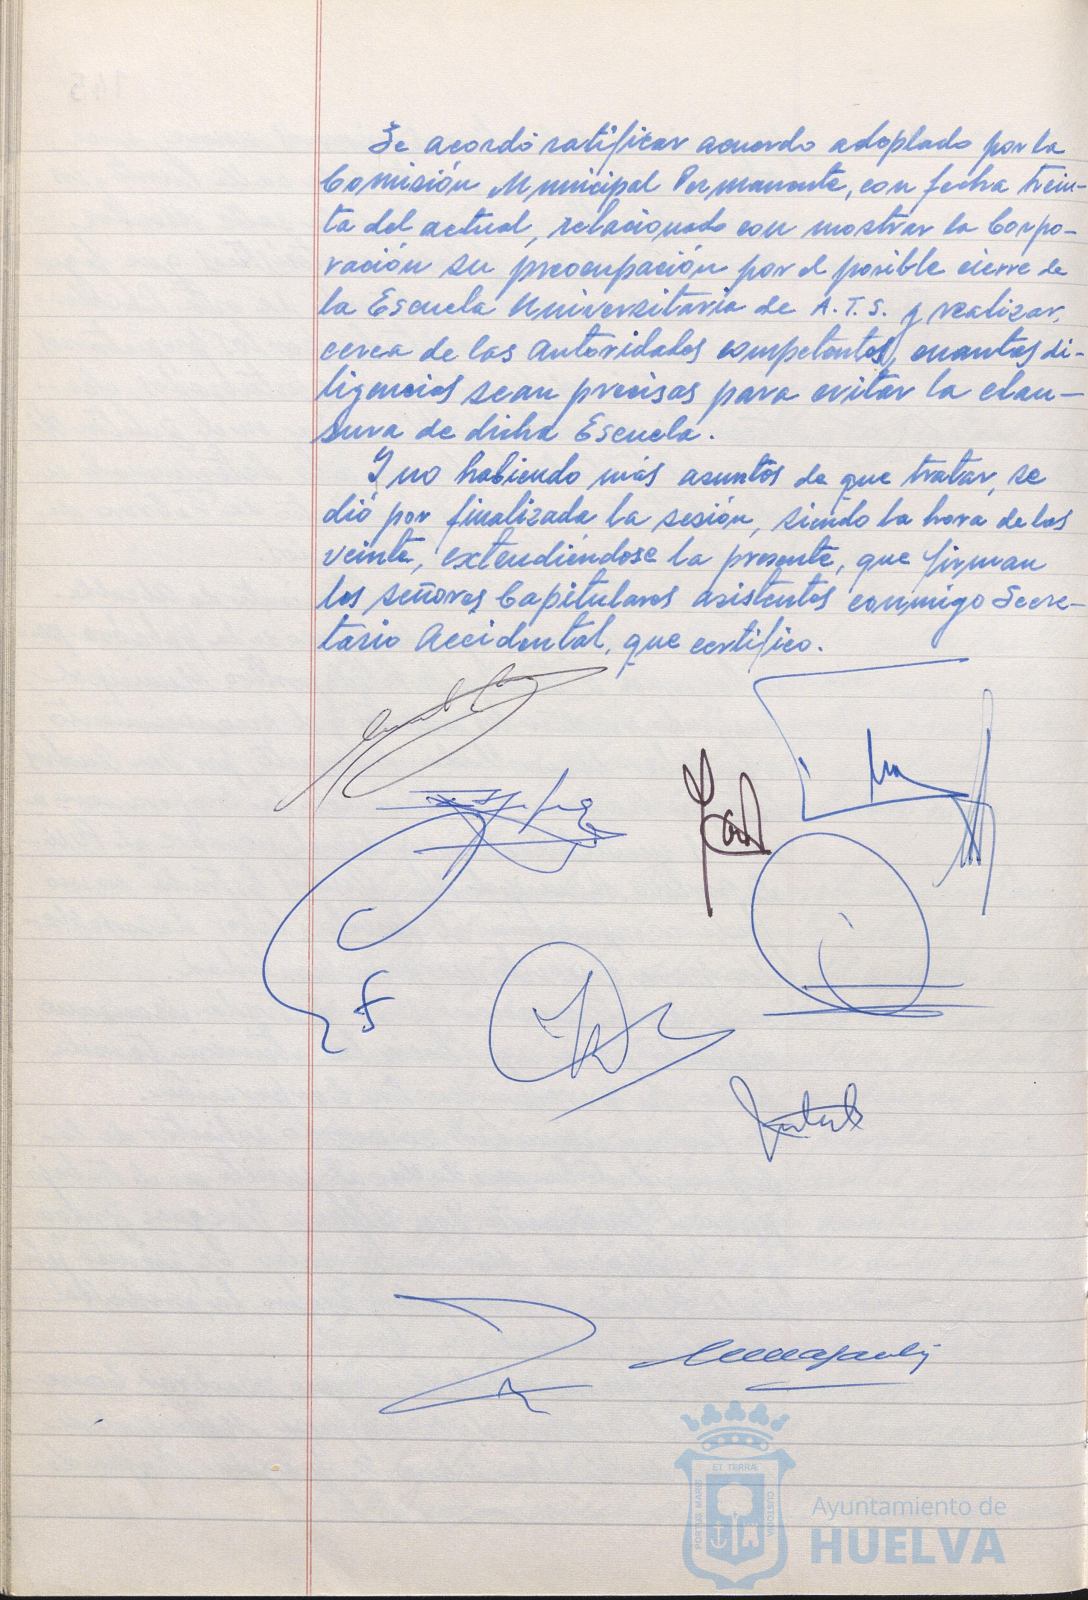 Se acordó ratificar acuerdo adoptado por la
Comisión Municipal Permanente, con fecha trein-
ta del actual, relacionado con mostrar la Corpo-
ración su preocupación por el posible cierre de
la Escuela Universitaria de A.T.S. y realizar,
cerca de las Autoridades competentes, cuantas di-
ligencias sean precisas para evitar la clau-
sura de dicha Escuela.
Y no habiendo más asuntos de que tratar, se
dió por finalizada la sesión, siendo la hora de las
veinte, extendiéndose la presente, que firman
los señores Capitulares asistentes conmigo Secre-
tario Accidental, que certifico.
PORTUS MARIS
ET TERRAE
CUSTODIA
Ayuntamiento de
HUELVA